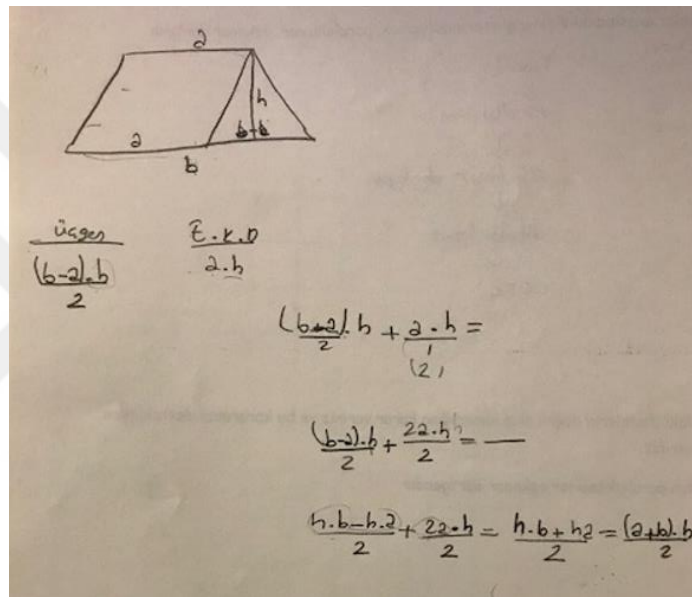 a
h
a
b-a
b
üçgen E.K.D
(b-a).h/2 a.h
(b-a).h/2 + a.h/1 =
(2)
(b-a).h/2 + 2a.h/2 = —
h.b-h.a/2 + 2a.h/2 = h.b+ha/2 = (a+b).h/2